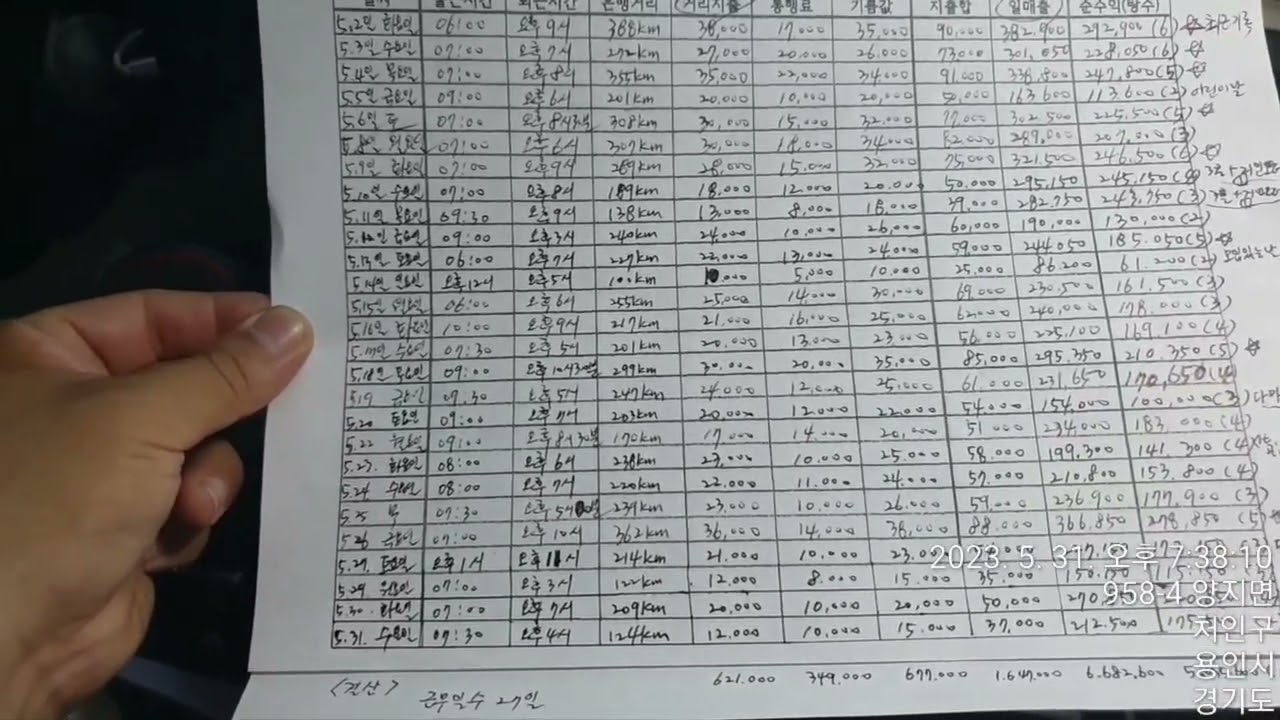 날짜 출근시간 퇴근시간 운행거리 (거리지출) 통행료 기름값 지출합 (일매출) 순수익(탕수)
5.2일 화요일 06:00 오후 9시 388km 38,000 17,000 35,000 90,000 382,900 292,900 (6) 최근기록
5.3일 수요일 07:00 오후 7시 272km 27,000 20,000 26,000 73,000 301,050 228,050 (6)
5.4일 목요일 07:00 오후 8시 355km 35,000 22,000 34,000 91,000 338,800 247,800 (5)
5.5일 금요일 09:00 오후 6시 201km 20,000 10,000 20,000 50,000 163,600 113,600 (2) 어린이날
5.6일 토 07:00 오후 8시30분 308km 30,000 15,000 32,000 77,000 302,500 225,500 (5)
5.8일 월요일 07:00 오후 6시 307km 30,000 18,000 34,000 82,000 289,000 207,000 (3)
5.9일 화요일 07:00 오후 9시 289km 28,000 15,000 32,000 75,000 321,500 246,500 (6)
5.10일 수요일 07:00 오후 8시 189km 18,000 12,000 20,000 50,000 295,150 245,150
5.11일 목요일 09:30 오후 9시 138km 13,000 8,000 18,000 39,000 282,750 243,750 (3)
5.12일 금요일 09:00 오후 3시 240km 24,000 10,000 26,000 60,000 190,000 130,000 (2)
5.13일 토요일 06:00 오후 7시 227km 22,000 13,000 24,000 59,000 244,050 185,050 (5)
5.14일 일요일 오후 12시 오후 5시 100km 10,000 5,000 10,000 25,000 86,200 61,200 (2)
5.15일 월요일 06:00 오후 6시 255km 25,000 14,000 30,000 69,000 230,500 161,500 (3)
5.16일 화요일 10:00 오후 9시 217km 21,000 16,000 25,000 62,000 240,000 178,000 (3)
5.17일 수요일 07:30 오후 5시 201km 20,000 13,000 23,000 56,000 225,100 169,100 (4)
5.18일 목요일 09:00 오후 10시30분 299km 30,000 20,000 35,000 85,000 295,350 210,350 (5)
5.19 금요일 07:30 오후 5시 247km 24,000 12,000 25,000 61,000 231,650 170,650 (4)
5.20 토요일 09:00 오후 7시 203km 20,000 12,000 22,000 54,000 154,000 100,000 (3)
5.22 월요일 09:00 오후 8시30분 170km 17,000 14,000 20,000 51,000 234,000 183,000 (4)
5.23. 화요일 08:00 오후 6시 238km 23,000 10,000 25,000 58,000 199,300 141,300 (4)
5.24. 수요일 08:00 오후 7시 220km 22,000 11,000 24,000 57,000 210,800 153,800 (4)
5.25 목 07:30 오후 239km 23,000 10,000 26,000 59,000 236,900 177,900 (3)
5.26 금요일 07:00 오후 10시 362km 36,000 14,000 38,000 88,000 366,850 278,850 (5)
5.27. 토요일 오후 1시 오후 11시 214km 21,000 10,000
5.29. 월요일 07:00 오후 3시 122km 12,000 8,000 15,000 35,000
5.30. 화요일 07:00 오후 7시 209km 20,000 10,000 20,000 50,000
5.31. 수요일 07:30 오후 4시 124km 12,000 10,000 15,000 37,000 212,500
621,000 349,000 677,000 1,647,000 6,682,600
<결산> 근무일수 27일
2023. 5. 31. 오후 7:38:10
958-4 양지면
처인구
용인시
경기도